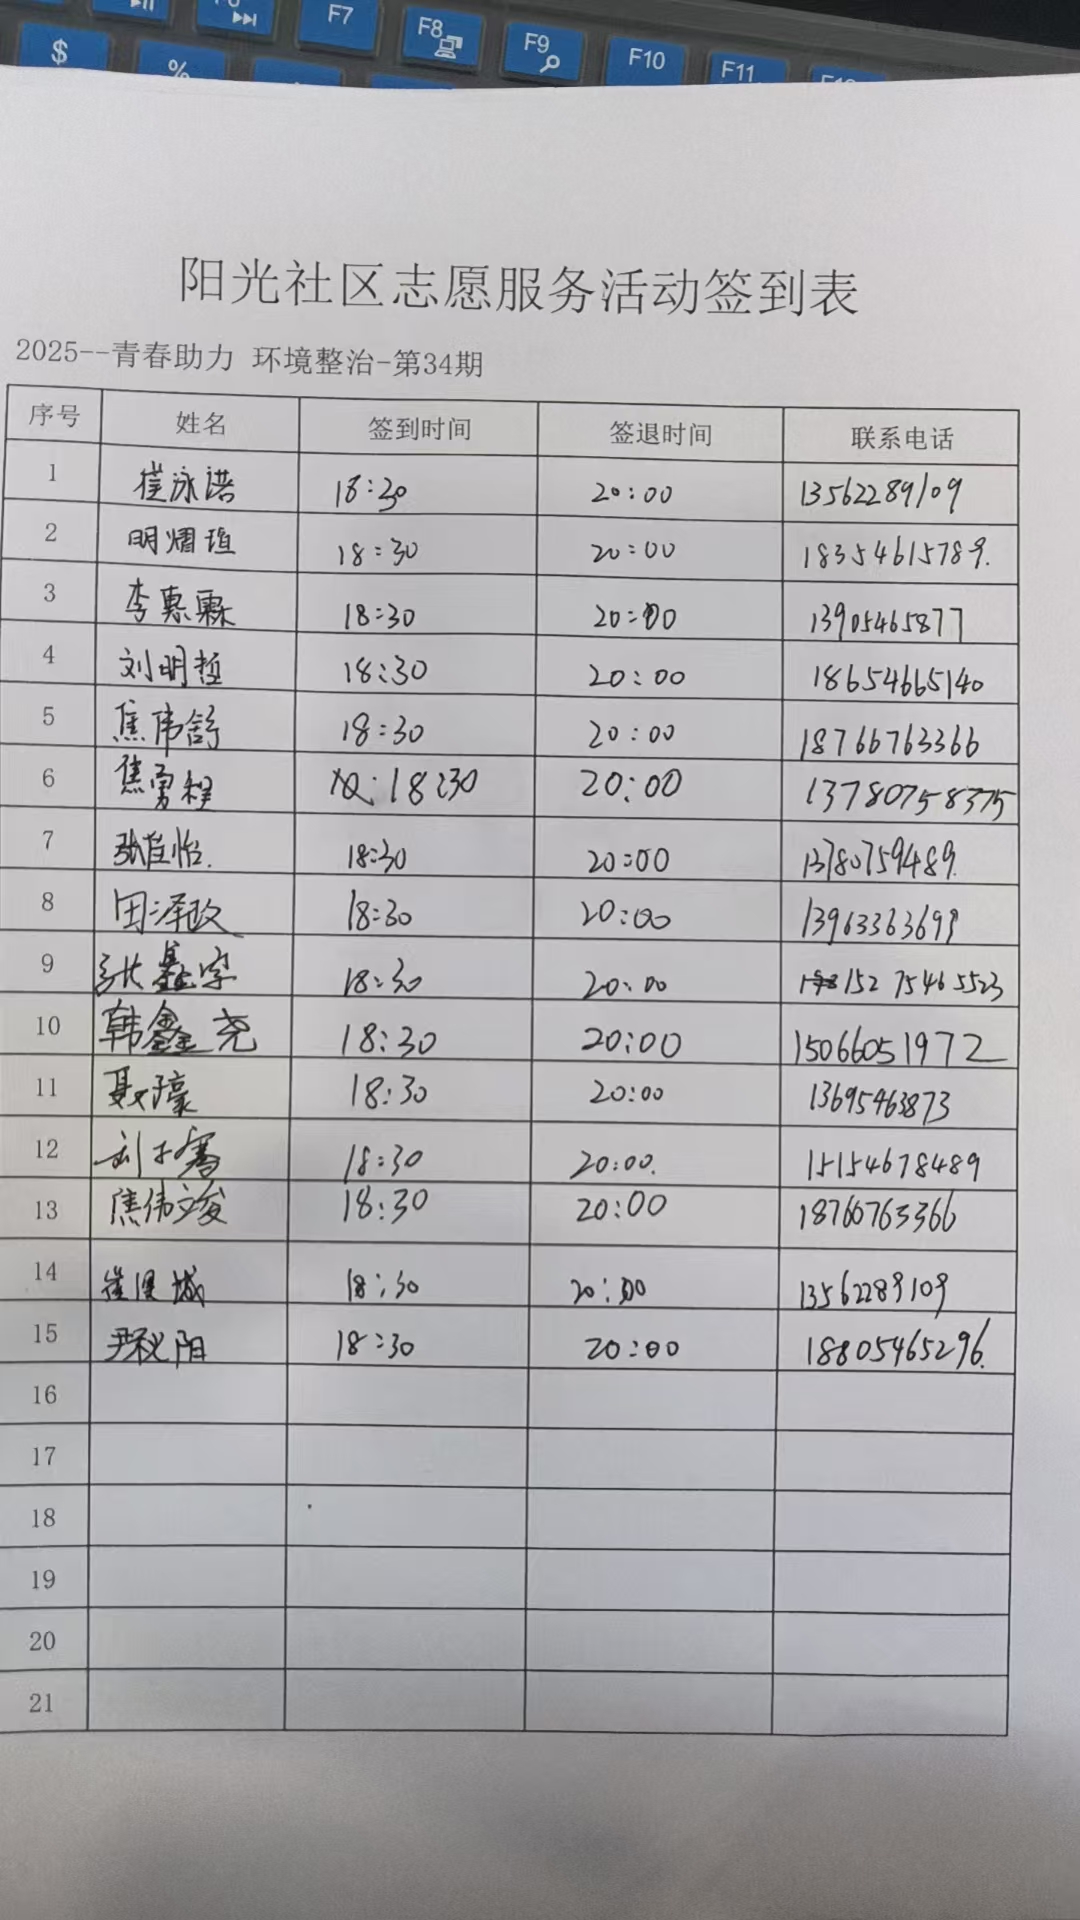 F7
F8
F9
F10
F11
$
%
阳光社区志愿服务活动签到表
2025--青春助力 环境整治-第34期
序号 姓名 签到时间 签退时间 联系电话
1 崔泳浩 18:30 20:00 13562289109
2 明熠瑄 18:30 20:00 18354615789.
3 李惠霖 18:30 20:00 13905465877
4 刘明哲 18:30 20:00 18654665140
5 焦伟舒 18:30 20:00 18766763366
6 焦勇程 18:30 20:00 13780758375
7 张佳怡. 18:30 20:00 13780759489.
8 田泽政 18:30 20:00 13963363699
9 张鑫宇 18:30 20:00 152 7546 5523
10 韩鑫尧 18:30 20:00 15066051972
11 聂子豪 18:30 20:00 13695463873
12 18:30 20:00. 15154678489
13 焦伟俊 18:30 20:00 18766763366
14 崔 城 18:30 20:00 13562289109
15 尹秘阳 18:30 20:00 18805465296.
16
17
18
19
20
21